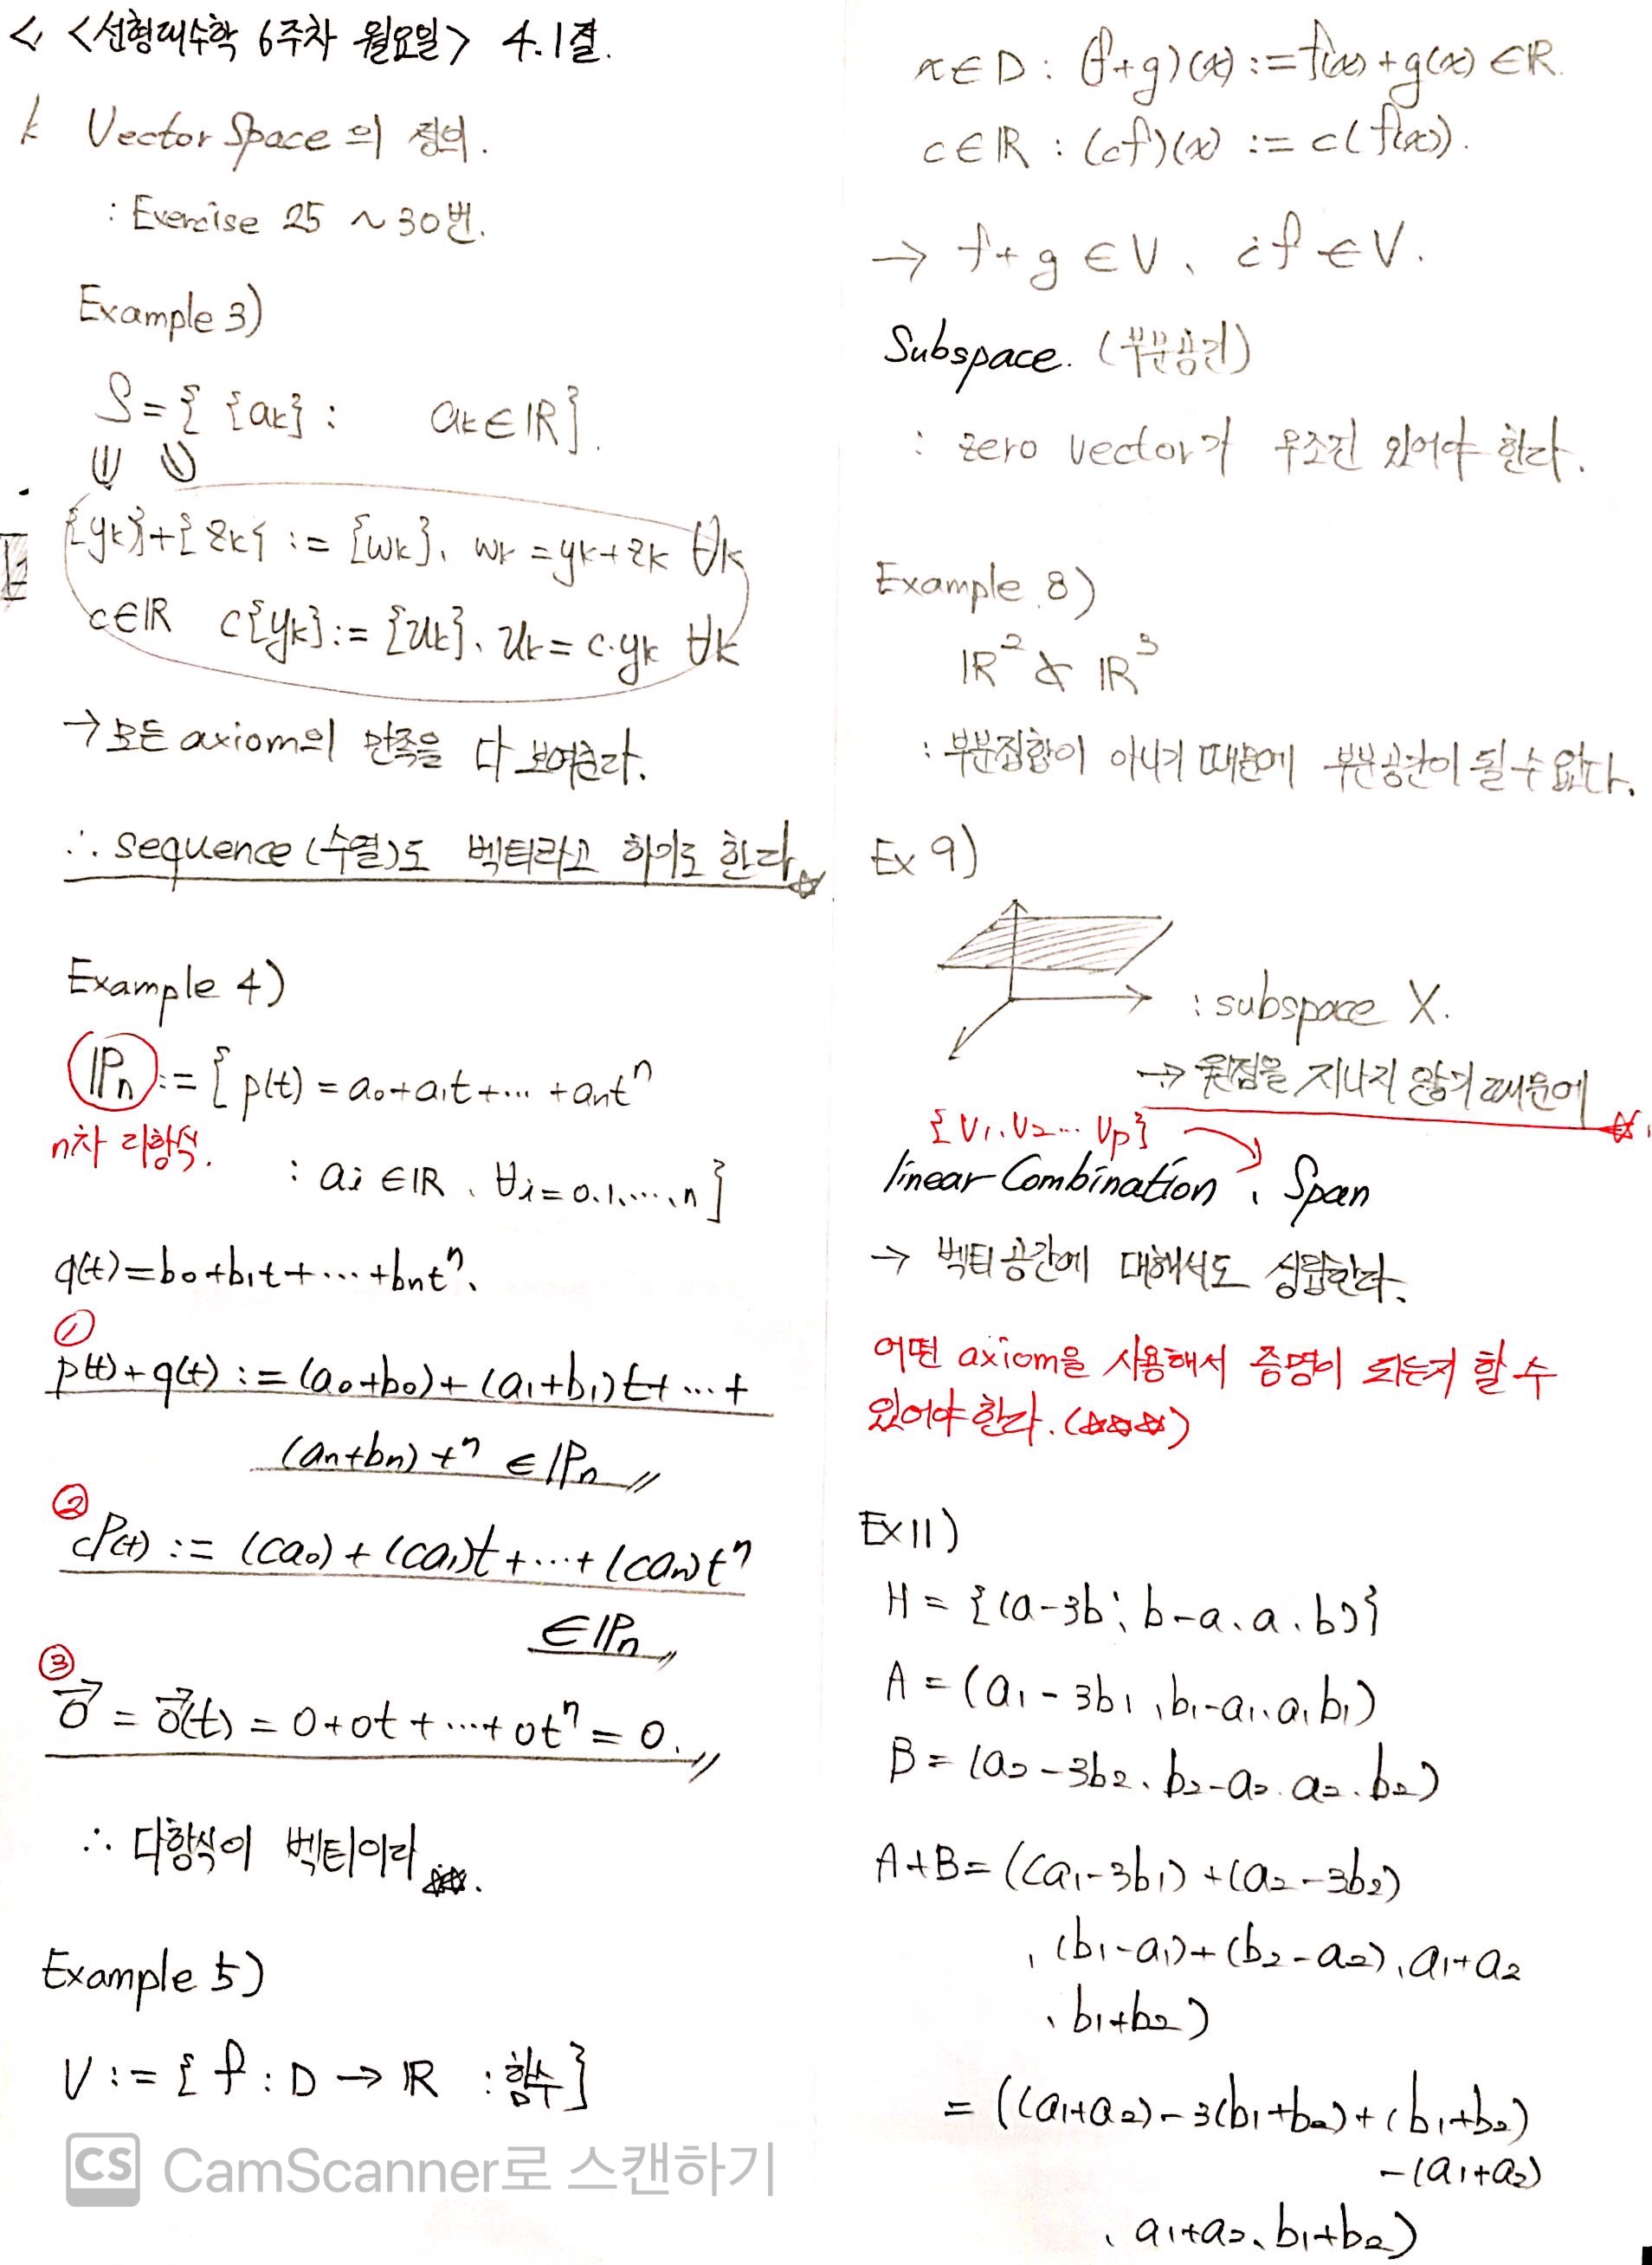 <선형대수학 6주차 월요일> 4.1절.
Vector Space의 정의.
: Exercise 25 ~ 30번.
Example 3)
S = { {ak} : ak ∈ ℝ }.
{yk} + {zk} := {wk}, wk = yk + zk ∀k
c∈ℝ c{yk} := {uk}, uk = c·yk ∀k
→ 모든 axiom의 만족을 다 보여준다.
∴ sequence (수열)도 벡터라고 하기도 한다 ☆
Example 4)
ℙn := { p(t) = a0 + a1t + ··· + antⁿ
n차 다항식.
: ai ∈ ℝ, ∀i = 0, 1, ···, n }
q(t) = b0 + b1t + ··· + bntⁿ.
①
p(t) + q(t) := (a0+b0) + (a1+b1)t + ··· +
(an+bn)tⁿ ∈ ℙn //
②
cP(t) := (ca0) + (ca1)t + ··· + (can)tⁿ
∈ ℙn //
③
0⃗ = 0⃗(t) = 0 + 0t + ··· + 0tⁿ = 0. //
∴ 다항식이 벡터이라 ☆☆.
Example 5)
V := { f : D → ℝ : 함수 }
CS CamScanner로 스캔하기
x∈D : (f+g)(x) := f(x) + g(x) ∈ ℝ.
c∈ℝ : (cf)(x) := c(f(x)).
→ f+g ∈ V, cf ∈ V.
Subspace. (부분공간)
: zero vector가 무조건 있어야 한다.
Example 8)
ℝ² & ℝ³
: 부분집합이 아니기 때문에 부분공간이 될 수 없다.
Ex 9)
: subspace X.
→ 원점을 지나지 않기 때문에 ☆
{v1, v2 ··· vp}
linear Combination, Span
→ 벡터공간에 대해서도 성립한다.
어떤 axiom을 사용해서 증명이 되는지 할 수
있어야 한다. (☆☆☆)
Ex 11)
H = {(a-3b, b-a, a, b)}
A = (a1 - 3b1, b1-a1, a1 b1)
B = (a2 - 3b2, b2-a2, a2, b2)
A+B = ((a1-3b1) + (a2-3b2)
, (b1-a1) + (b2-a2), a1+a2
, b1+b2)
= ((a1+a2) - 3(b1+b2) + (b1+b2)
- (a1+a2)
, a1+a2, b1+b2)